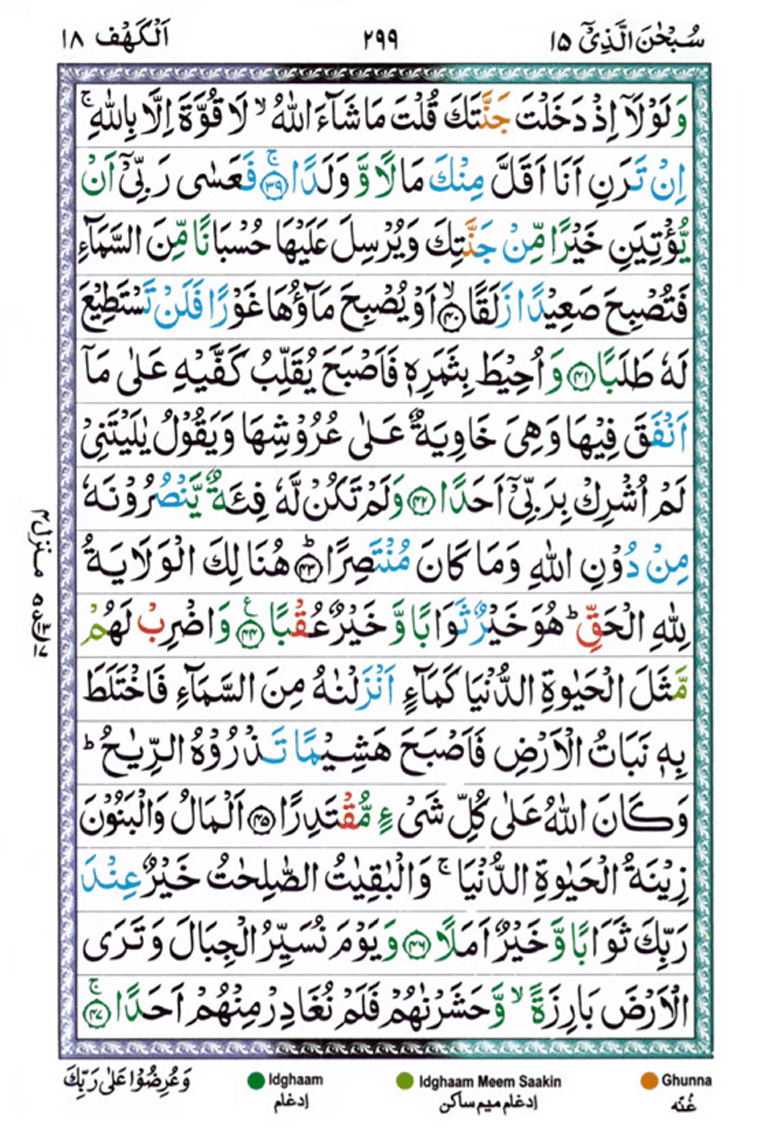 سُبْحٰنَ الَّذِیْۤ ١٥ ٢٩٩ اَلْكَهْف ١٨
وَلَوْلَاۤ اِذْ دَخَلْتَ جَنَّتَكَ قُلْتَ مَا شَآءَ اللّٰهُ ۙ لَا قُوَّةَ اِلَّا بِاللّٰهِ ۚ
اِنْ تَرَنِ اَنَا اَقَلَّ مِنْكَ مَالًا وَّ وَلَدًا ۚ ﴿٣٩﴾ فَعَسٰى رَبِّیْۤ اَنْ
یُّؤْتِیَنِ خَیْرًا مِّنْ جَنَّتِكَ وَیُرْسِلَ عَلَیْهَا حُسْبَانًا مِّنَ السَّمَآءِ
فَتُصْبِحَ صَعِیْدًا زَلَقًا ۙ ﴿٤٠﴾ اَوْ یُصْبِحَ مَآؤُهَا غَوْرًا فَلَنْ تَسْتَطِیْعَ
لَهٗ طَلَبًا ﴿٤١﴾ وَاُحِیْطَ بِثَمَرِهٖ فَاَصْبَحَ یُقَلِّبُ كَفَّیْهِ عَلٰى مَاۤ
اَنْفَقَ فِیْهَا وَهِیَ خَاوِیَةٌ عَلٰى عُرُوْشِهَا وَیَقُوْلُ یٰلَیْتَنِیْ
لَمْ اُشْرِكْ بِرَبِّیْۤ اَحَدًا ﴿٤٢﴾ وَلَمْ تَكُنْ لَّهٗ فِئَةٌ یَّنْصُرُوْنَهٗ
مِنْ دُوْنِ اللّٰهِ وَمَا كَانَ مُنْتَصِرًا ؕ ﴿٤٣﴾ هُنَالِكَ الْوَلَایَةُ
لِلّٰهِ الْحَقِّ ؕ هُوَ خَیْرٌ ثَوَابًا وَّ خَیْرٌ عُقْبًا ﴿٤٤﴾ ع وَاضْرِبْ لَهُمْ
مَّثَلَ الْحَیٰوةِ الدُّنْیَا كَمَآءٍ اَنْزَلْنٰهُ مِنَ السَّمَآءِ فَاخْتَلَطَ
بِهٖ نَبَاتُ الْاَرْضِ فَاَصْبَحَ هَشِیْمًا تَذْرُوْهُ الرِّیٰحُ ؕ
وَكَانَ اللّٰهُ عَلٰى كُلِّ شَیْءٍ مُّقْتَدِرًا ﴿٤٥﴾ اَلْمَالُ وَالْبَنُوْنَ
زِیْنَةُ الْحَیٰوةِ الدُّنْیَا ۚ وَالْبٰقِیٰتُ الصّٰلِحٰتُ خَیْرٌ عِنْدَ
رَبِّكَ ثَوَابًا وَّ خَیْرٌ اَمَلًا ﴿٤٦﴾ وَیَوْمَ نُسَیِّرُ الْجِبَالَ وَ تَرَى
الْاَرْضَ بَارِزَةً ۙ وَّ حَشَرْنٰهُمْ فَلَمْ نُغَادِرْ مِنْهُمْ اَحَدًا ۚ ﴿٤٧﴾
منزل ٤
وَعُرِضُوْا عَلٰى رَبِّكَ
Idghaam
إدغام
Idghaam Meem Saakin
إدغام میم ساکن
Ghunna
غُنّه